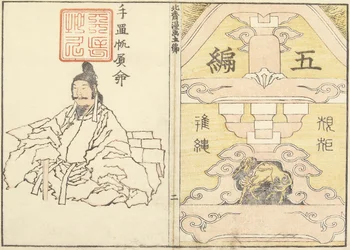 五編
規矩
準繩
北齋漫畫五編
二
手置帆負命